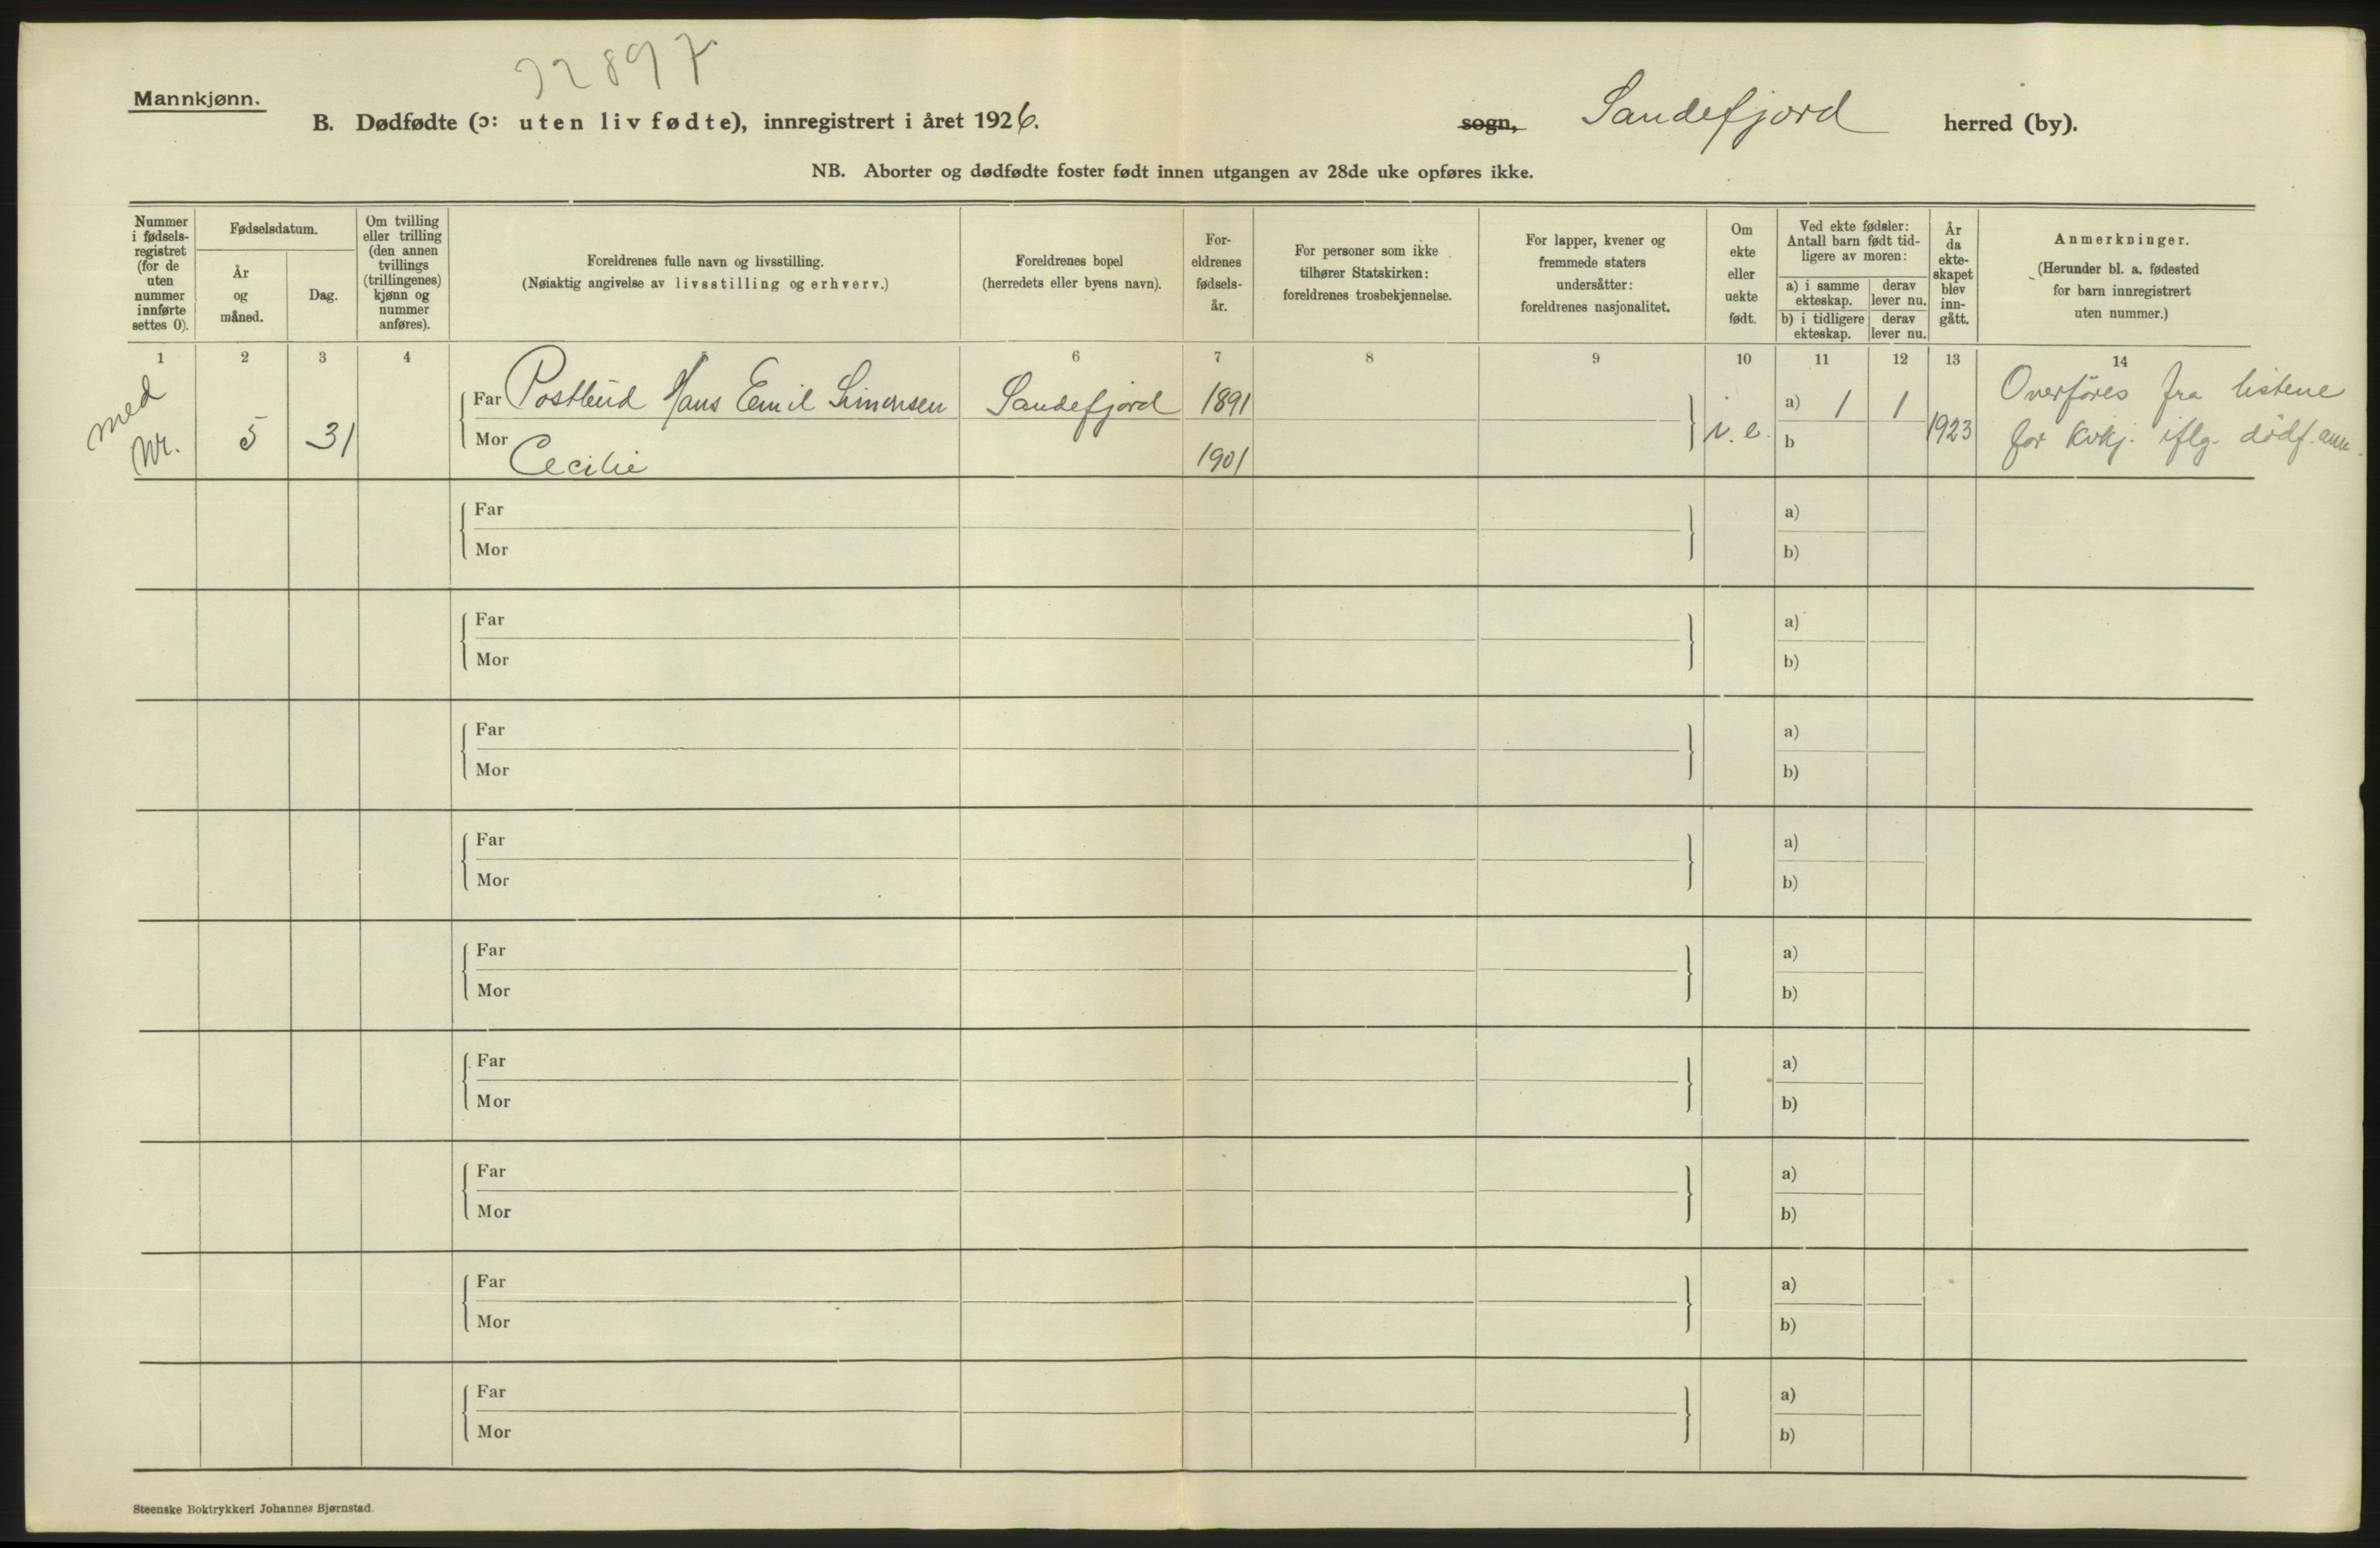 32897
Mannkjønn.
B. Dødfødte (ɔ: uten liv fødte), innregistrert i året 1926.
sogn, Sandefjord herred (by).
NB. Aborter og dødfødte foster født innen utgangen av 28de uke opføres ikke.
Nummer
i fødsels-
registret
(for de
uten
nummer
innførte
settes 0).
Fødselsdatum.
År
og
måned.
Dag.
Om tvilling
eller trilling
(den annen
tvillings
(trillingenes)
kjønn og
nummer
anføres).
Foreldrenes fulle navn og livsstilling.
(Nøiaktig angivelse av livsstilling og erhverv.)
Foreldrenes bopel
(herredets eller byens navn).
For-
eldrenes
fødsels-
år.
For personer som ikke
tilhører Statskirken:
foreldrenes trosbekjennelse.
For lapper, kvener og
fremmede staters
undersåtter:
foreldrenes nasjonalitet.
Om
ekte
eller
uekte
født.
Ved ekte fødsler:
Antall barn født tid-
ligere av moren:
a) i samme
ekteskap.
derav
lever nu.
b) i tidligere
ekteskap.
derav
lever nu.
År
da
ekte-
skapet
blev
inn-
gått.
Anmerkninger.
(Herunder bl. a. fødested
for barn innregistrert
uten nummer.)
1 2 3 4 5 6 7 8 9 10 11 12 13 14
med
Nr. 5 31
Far Postbud Hans Emil Simonsen Sandefjord 1891 a) 1 1 Overføres fra listene
Mor Cecilie 1901 i. e. b 1923 for kvkj. iflg. dødf. anm.
Far a)
Mor b)
Far a)
Mor b)
Far a)
Mor b)
Far a)
Mor b)
Far a)
Mor b)
Far a)
Mor b)
Far a)
Mor b)
Far a)
Mor b)
Far a)
Mor b)
Steenske Boktrykkeri Johannes Bjørnstad.